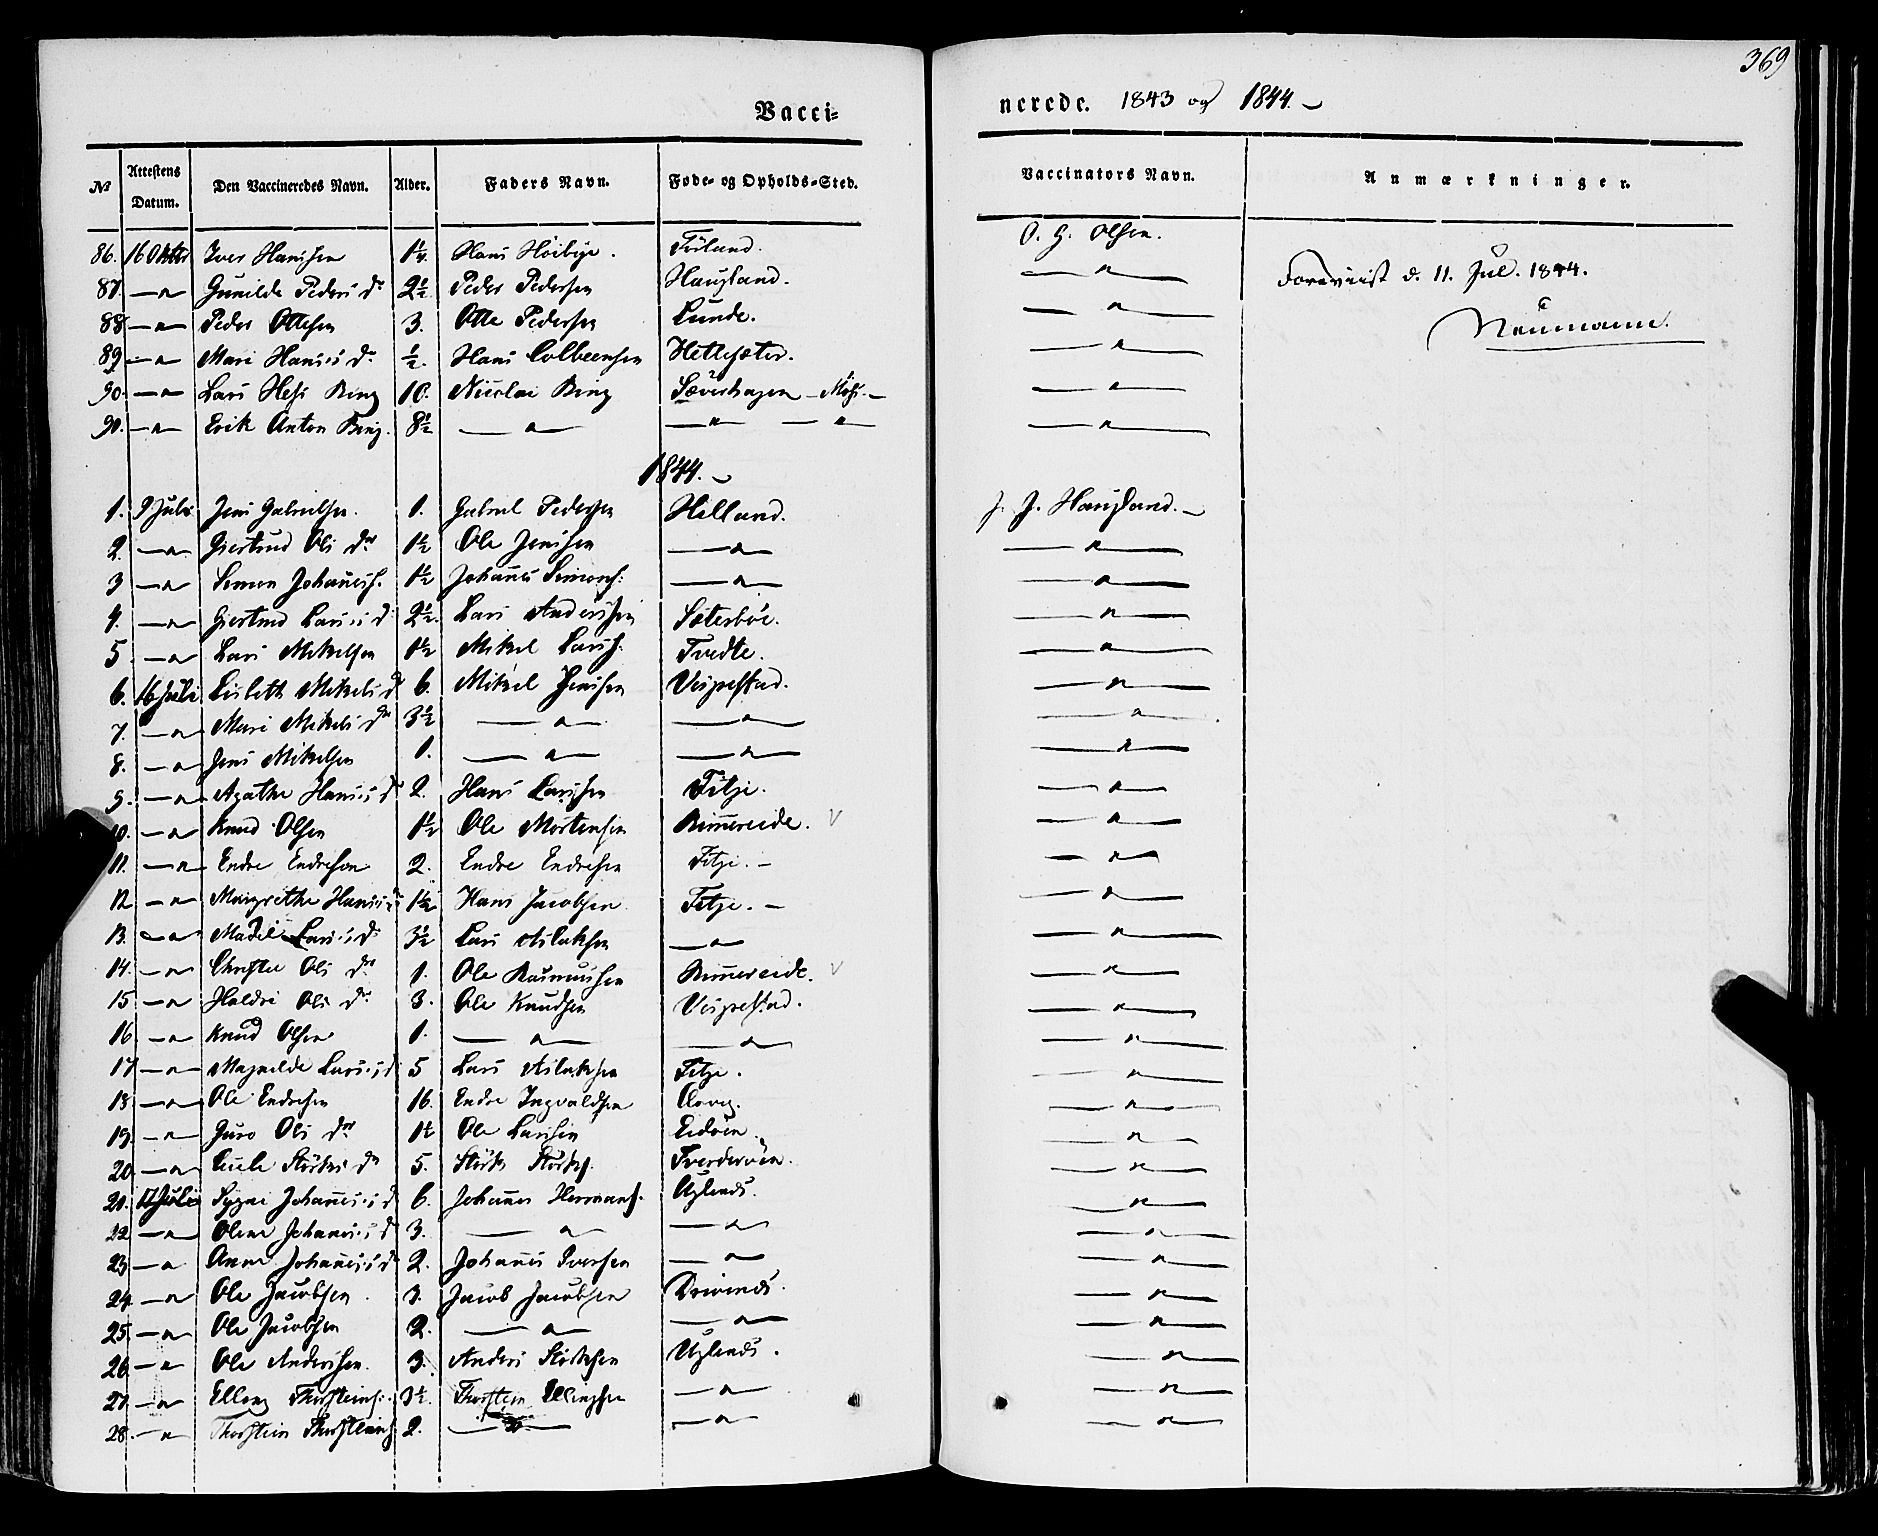 369
Vacci-
nerede. 1843 og 1844.
No Attestens Datum. Den Vaccineredes Navn. Alder. Faders Navn. Føde- og Opholds-Sted. Vaccinators Navn. Anmærkninger.
86. 16 Oktbr Iver Hansen 1¼ Hans Høibye. O. G. Olsen.
87 —"— Gunilde Peders Dr 2½ Peder Pedersen Haugland. —"— Foreviist d. 11. Jul. 1844.
88 —"— Peder Ottesen 3. Otte Pedersen Lunde. —"— Neumann.
89 —"— Mari Hans's Dr ½. Hans Colbeensen Hetlesæter. —"—
90. —"— Lars Hess Bing 10. Nicolai Bing Sæverhagen —"—
90. —"— Erik Anton Bing. 8½ —"— —"— —"— —"—
1844.
1. 9 Juli Jens Gabrielsen. 1. Gabriel Pedersen Helland. J. J. Haugland.
2. —"— Giertrud Ols Dtr 1½ Ole Jensen —"— —"—
3 —"— Simon Johaness. 1½ Johannes Simons: —"— —"—
4. —"— Giertrud Lars's D 2½. Lars Andersen Sæterbøe. —"—
5 —"— Lars Mikelsen 1½ Mikel Larss. Tvedte. —"—
6. 16 Juli Lisbeth Mikels D 6. Mikel Jensen Vespestad. —"—
7. —"— Mari Mikels Dr 3½ —"— —"— —"—
8. —"— Jens Mikelsen 1. —"— —"— —"—
9. —"— Agathe Hans's D 2. Hans Larsen Fitje. —"—
10. —"— Knud Olsen 1½ Ole Mortensen Rimereide. V —"—
11. —"— Endre Endresen 2. Endre Endresen Fitje. —"—
12 —"— Margrethe Hans's 1½ Hans Jacobsen Fitje. —"—
13. —"— Madli Lars's D 3½ Lars Aslaksen —"— —"—
14. —"— Christie Ols Dr 1. Ole Rasmussen Rimereide. V —"—
15 —"— Haldri Ols Dr 3. Ole Knudsen Vespestad. —"—
16 —"— Knud Olsen 1. —"— —"— —"—
17 —"— Magnilde Lars's D 5 Lars Aslaksen Fitje. —"—
18 —"— Ole Endresen 16. Endre Ingvaldsen —"—
19. —"— Guro Ols Dtr 1½ Ole Larsen Eidøen —"—
20 —"— Størks Dr 5. Størk Størks. Tverderøen. —"—
21. 17 Juli Sygni Johanes's D 6. Johannes Hermans. Uglends. —"—
22 —"— Oline Johanes's D 3. —"— —"— —"—
23 —"— Anne Johanes's D 2. Johannes Iversen —"— —"—
24. —"— Ole Jacobsen. 3. Jacob Jacobsen Drivends. —"—
25 —"— Ole Jacobsen 2. —"— —"— —"—
26. —"— Ole Andersen. 3. Anders Størksen Uglends. —"—
27. —"— Elling Thorsteins: 3½. Thorstein Ellingsen —"— —"—
28. —"— Thorstein Thorsteins 2. —"— —"— —"—